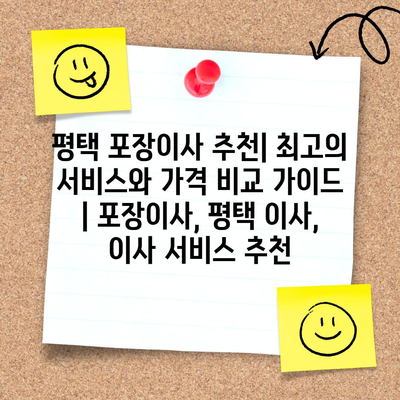 평택 포장이사 추천| 최고의
서비스와 가격 비교 가이드
| 포장이사, 평택 이사,
이사 서비스 추천